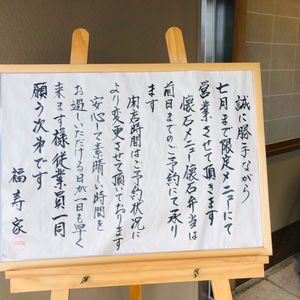 誠に勝手ながら
七月まで限定メニューにて
営業させて頂きます
懐石メニュー懐石弁当は
前日までのご予約にて承り
ます
閉店時間はご予約状況に
より変更させて頂いております
安心して素晴しい時間を
お過しいただける日が一日も早く
来ます様従業員一同
願う次第です
福寿家